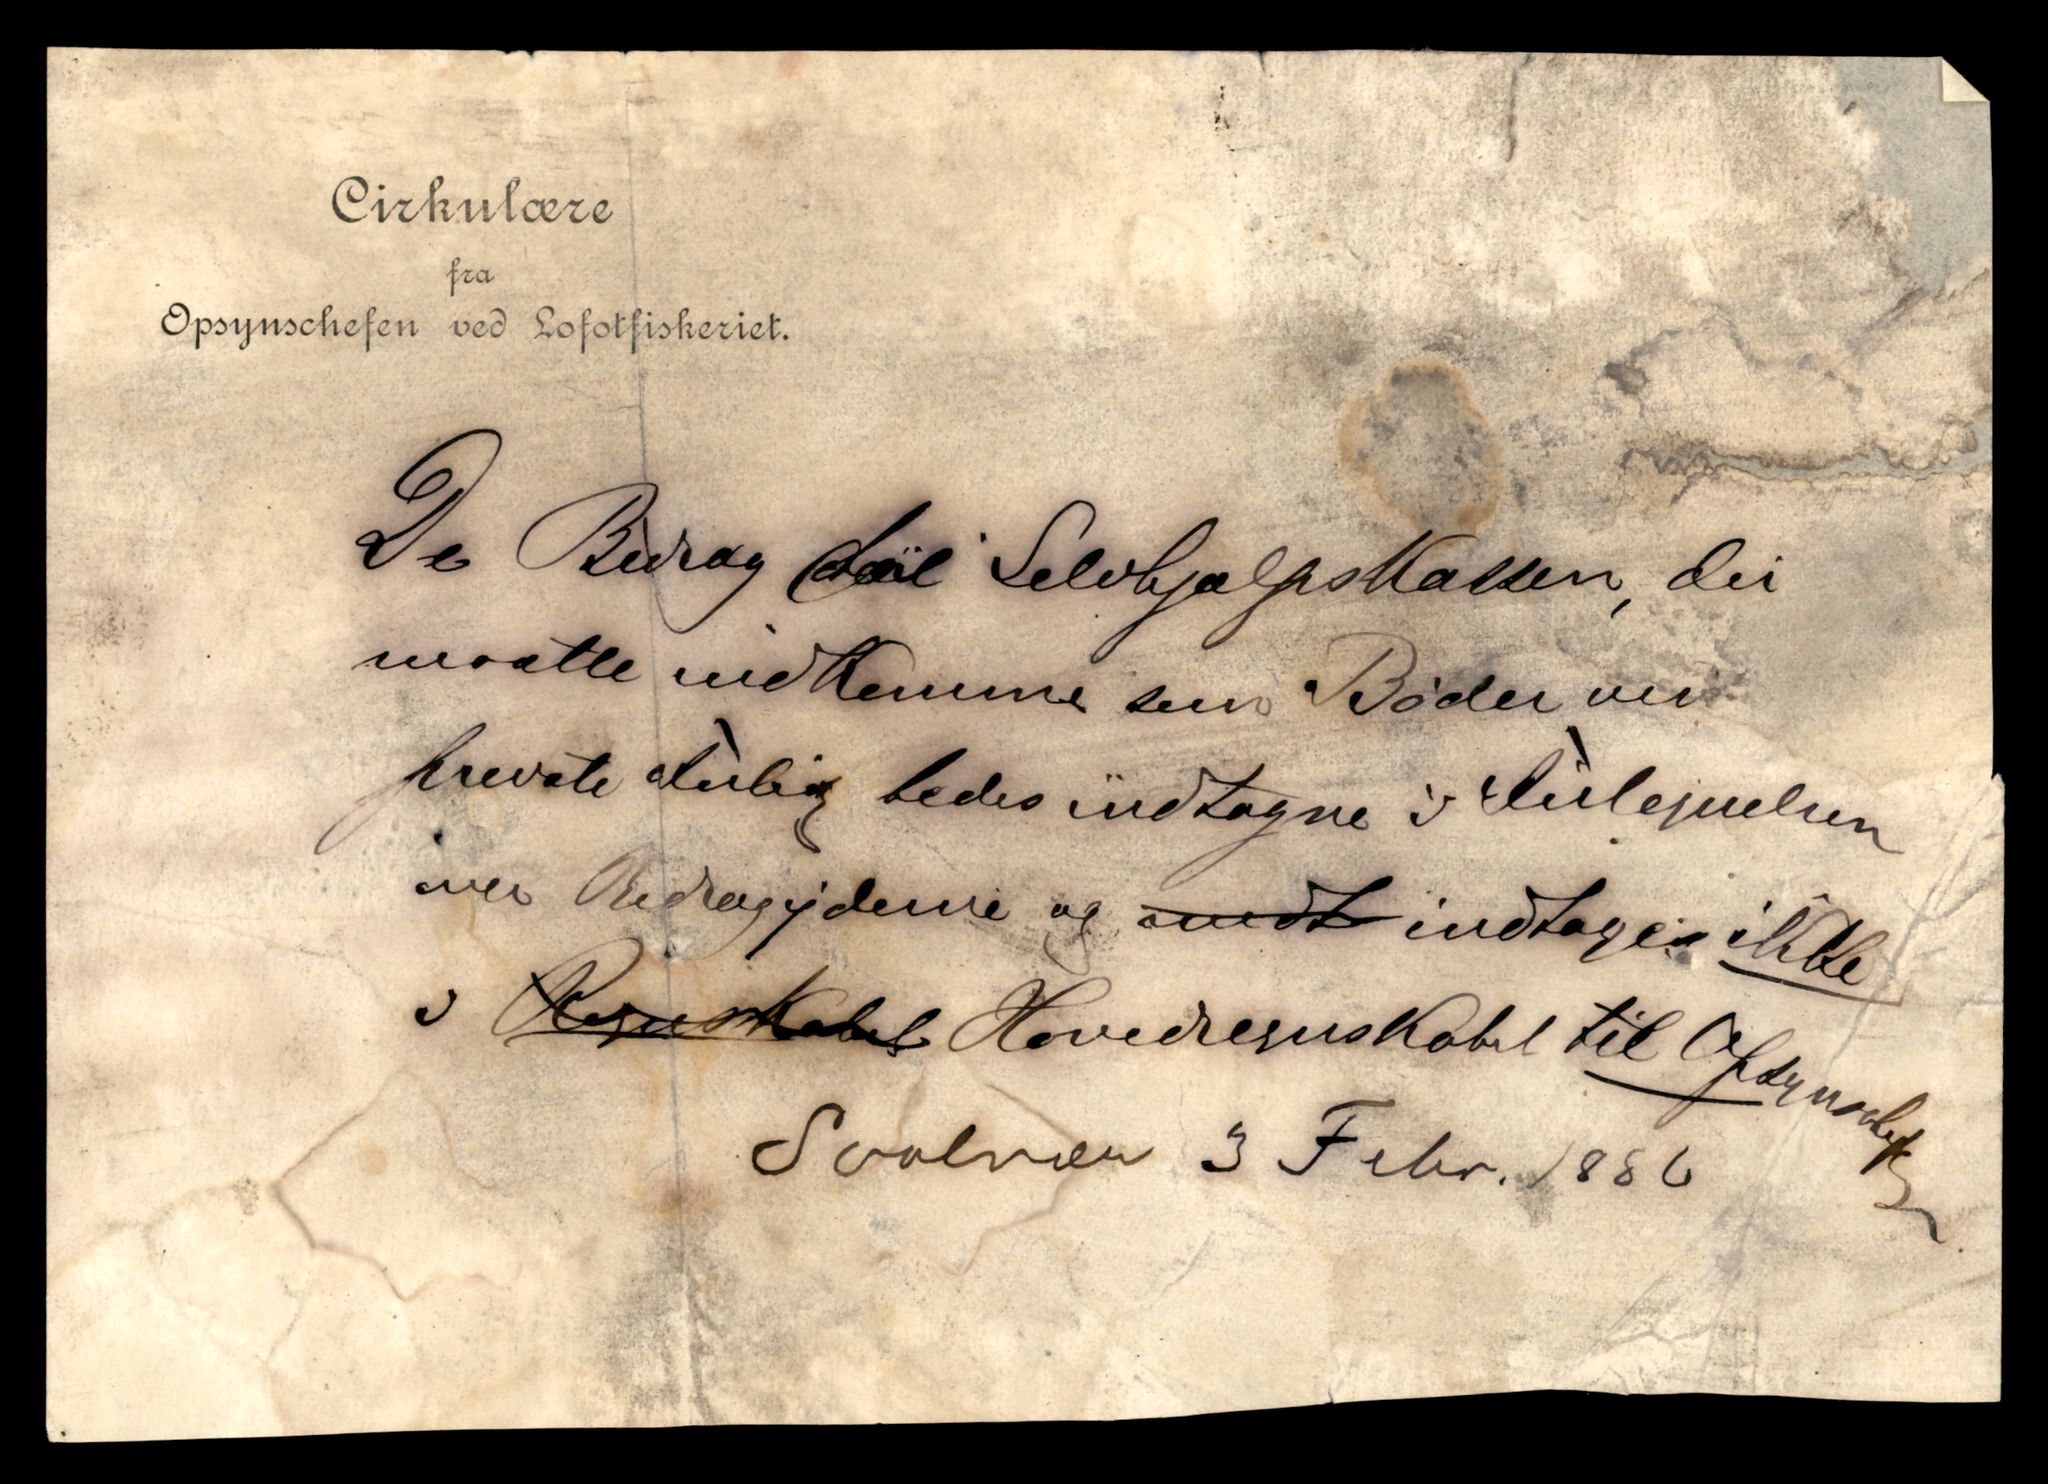 Cirkulære
fra
Opsynschefen ved Lofotfiskeriet.
De Bidrag til Selvhjælpskassen, der
maatte indkomme som Bøder ved
private Forlig bedes indtagne i Fortegnelsen
over Bidragyderne og indtages ikke
i Regnskabet Hovedregnskabet til Opsynschefen
Svolvær 3 Febr. 1886